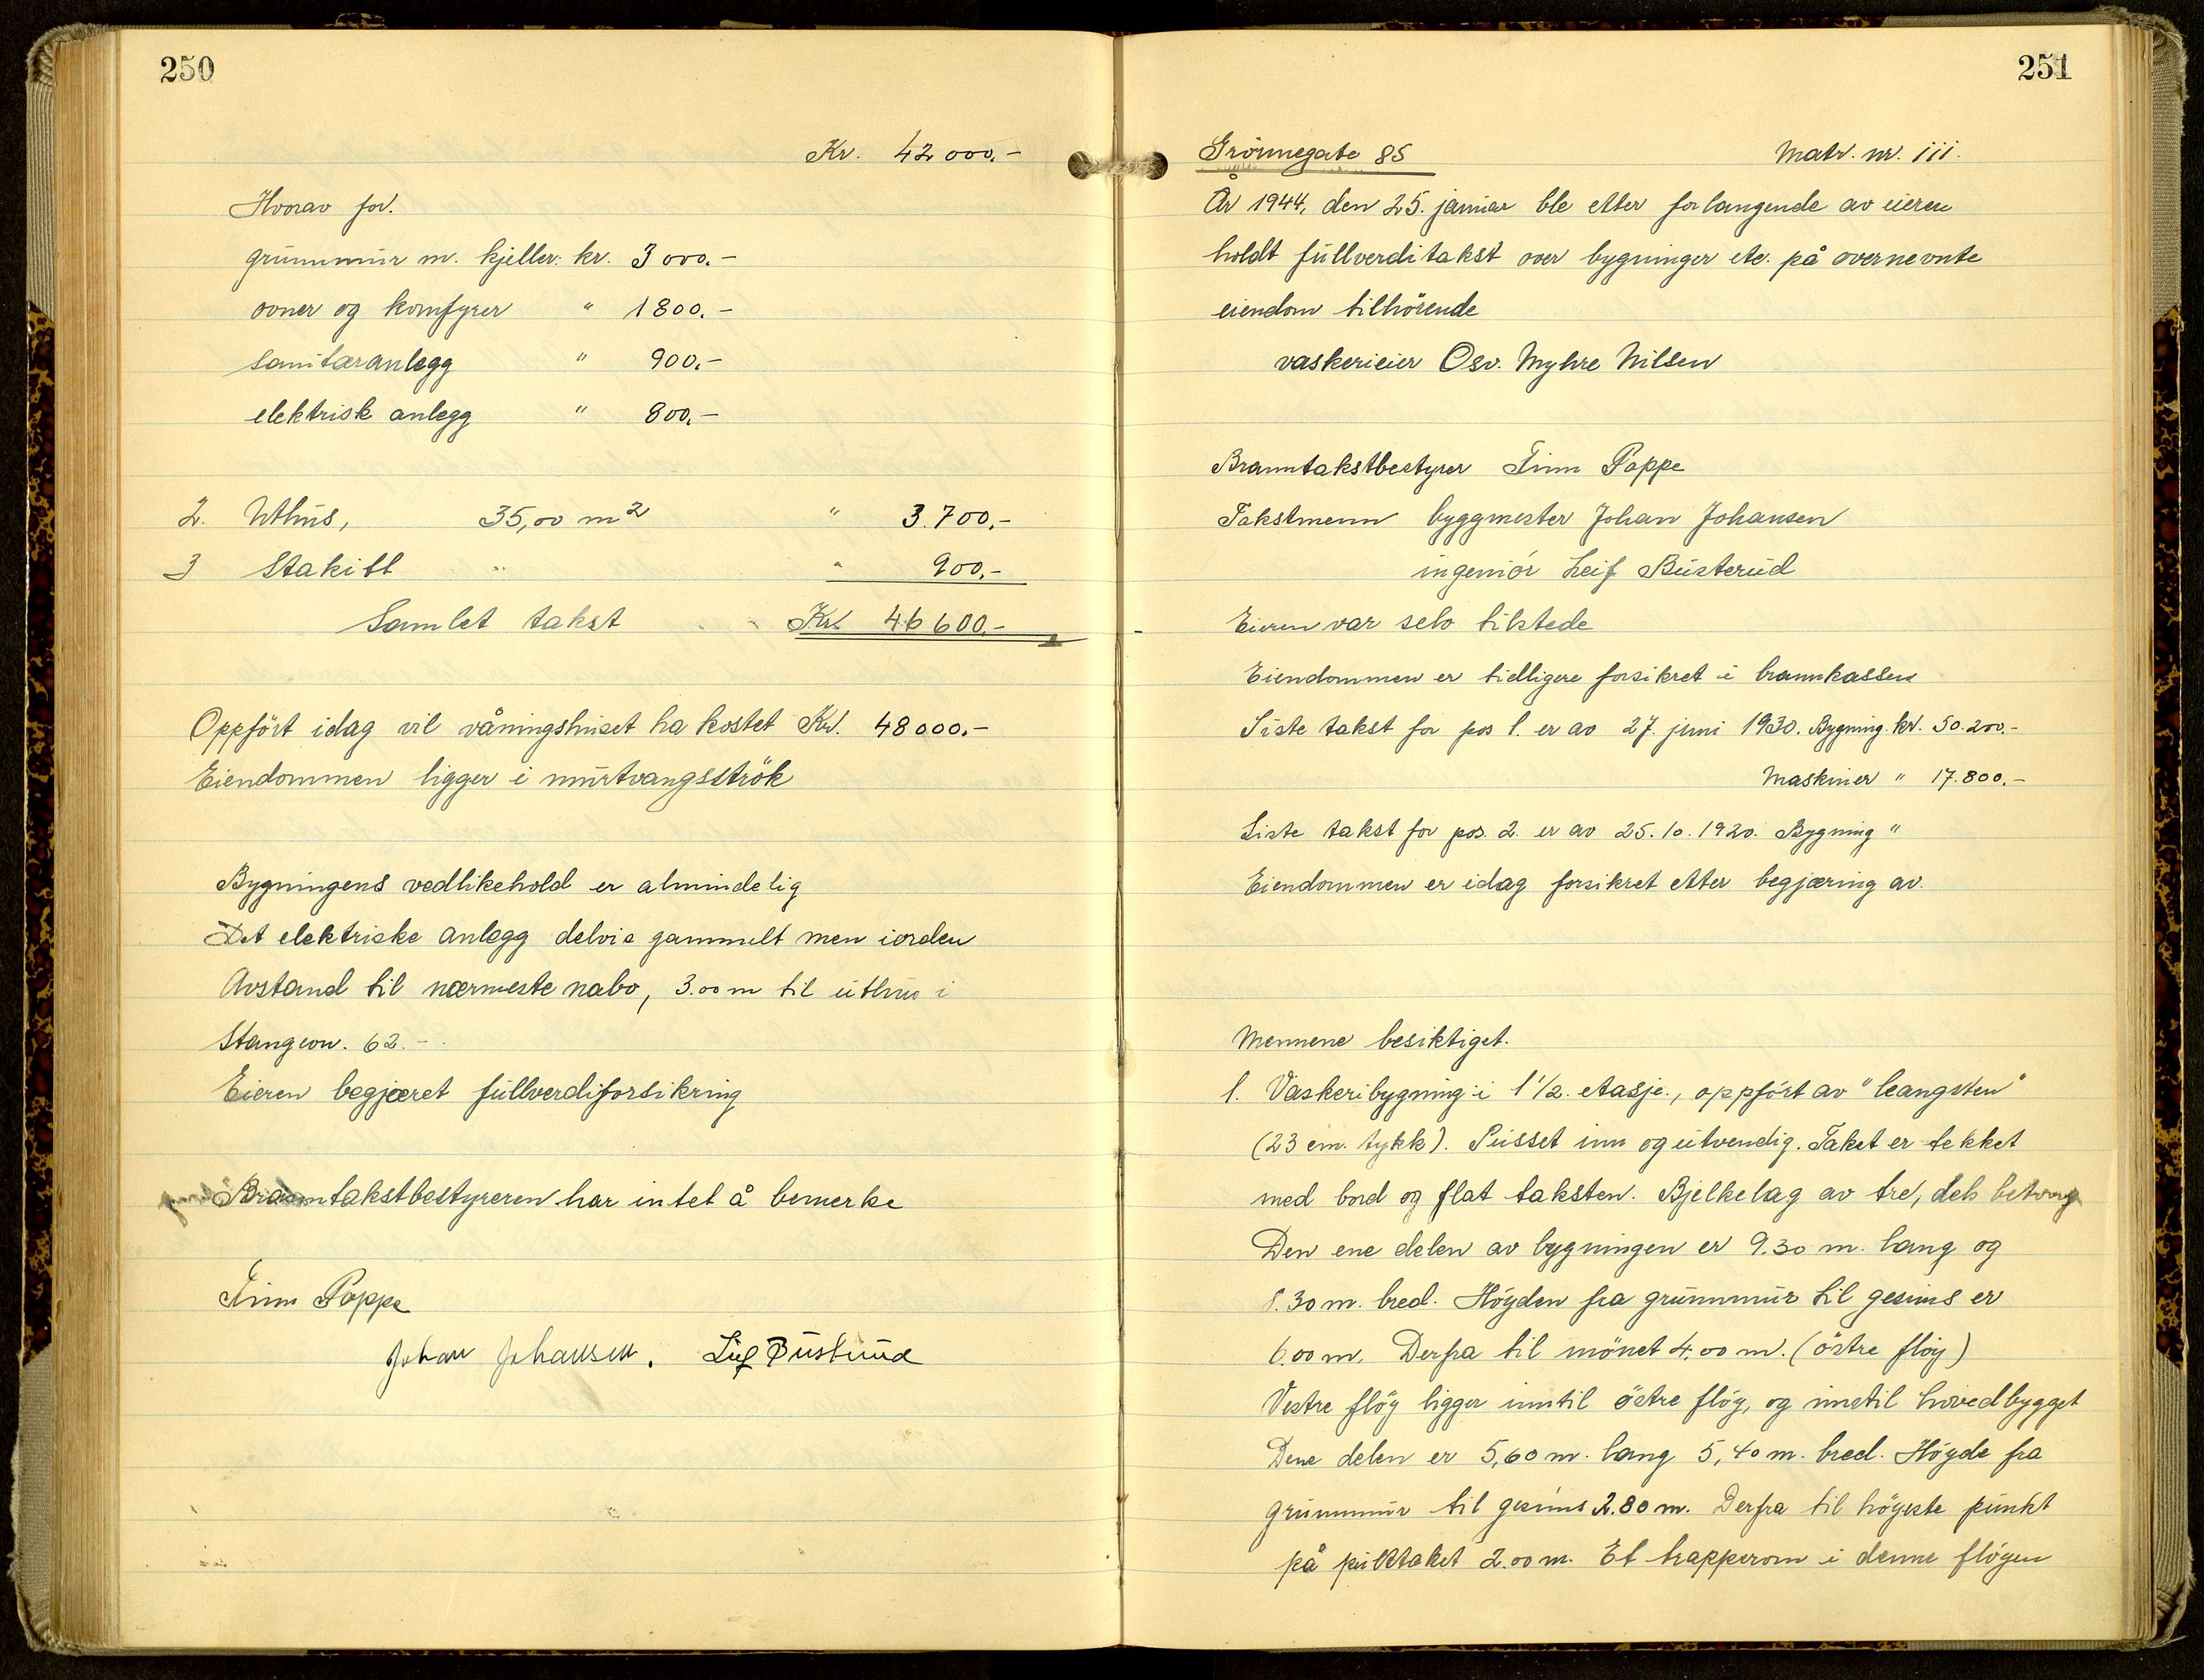 250
Kr. 42 000.-
Hvorav for.
grunnmur m. kjeller: kr. 3 000.-
ovner og komfyrer " 1800.-
sanitæranlegg " 900.-
elektrisk anlegg " 800.-
2. Uthus, 35,00 m² " 3.700.-
3 Stakitt " 900.-
Samlet takst Kr. 46 600.-
Oppført idag vil våningshuset ha kostet Kr. 48000.-
Eiendommen ligger i murtvangsströk
Bygningens vedlikehold er almindelig
Det elektriske anlegg delvis gammelt men iorden
Avstand til nærmeste nabo, 3.00 m til uthus i
Stangeon. 62.-
Eieren begjæret fullverdiforsikring
Branntakstbestyreren har intet å bemerke
Finn Poppe
Johan Johansen. Leif Busterud
251
Grönnegate 85 Matr. nr. 111.
År 1944, den 25. januar ble etter forlangende av eieren
holdt fullverditakst over bygninger etc. på overnevnte
eiendom tilhörende
vaskerieier Osv. Myhre Nilsen
Branntakstbestyrer Finn Poppe
Takstmenn byggmester Johan Johansen
ingeniór Leif Busterud
Eieren var selv tilstede
Eiendommen er tidligere forsikret i brannkassen
Siste takst for pos 1. er av 27. juni 1930. Bygning kr. 50.200.-
Maskiner " 17.800.-
Siste takst for pos. 2. er av 25.10.1920. Bygning "
Eiendommen er idag forsikret etter begjæring av.
Mennene besiktiget.
1. Vaskeribygning i 1 1/2. etasje., oppfört av "leangsten"
(23 cm. tykk). Pusset inn og utvendig. Taket er tekket
med bord og flat taksten. Bjelkelag av tre, dels betong
Den ene delen av bygningen er 9.30 m. lang og
8.30 m. bred. Höyden fra grunnmur til gesims er
6.00 m. Derfra til mönet 4.00 m. (östre flöy)
Vestre flöy ligger inntil östre flöy, og inntil hovedbygget
Dene delen er 5,60 m. lang 5,40 m. bred. Höyde fra
grunnmur til gesims 2.80 m. Derfra til höyeste punkt
på pulttaket 2.00 m. Et trapperom i denne flöyen